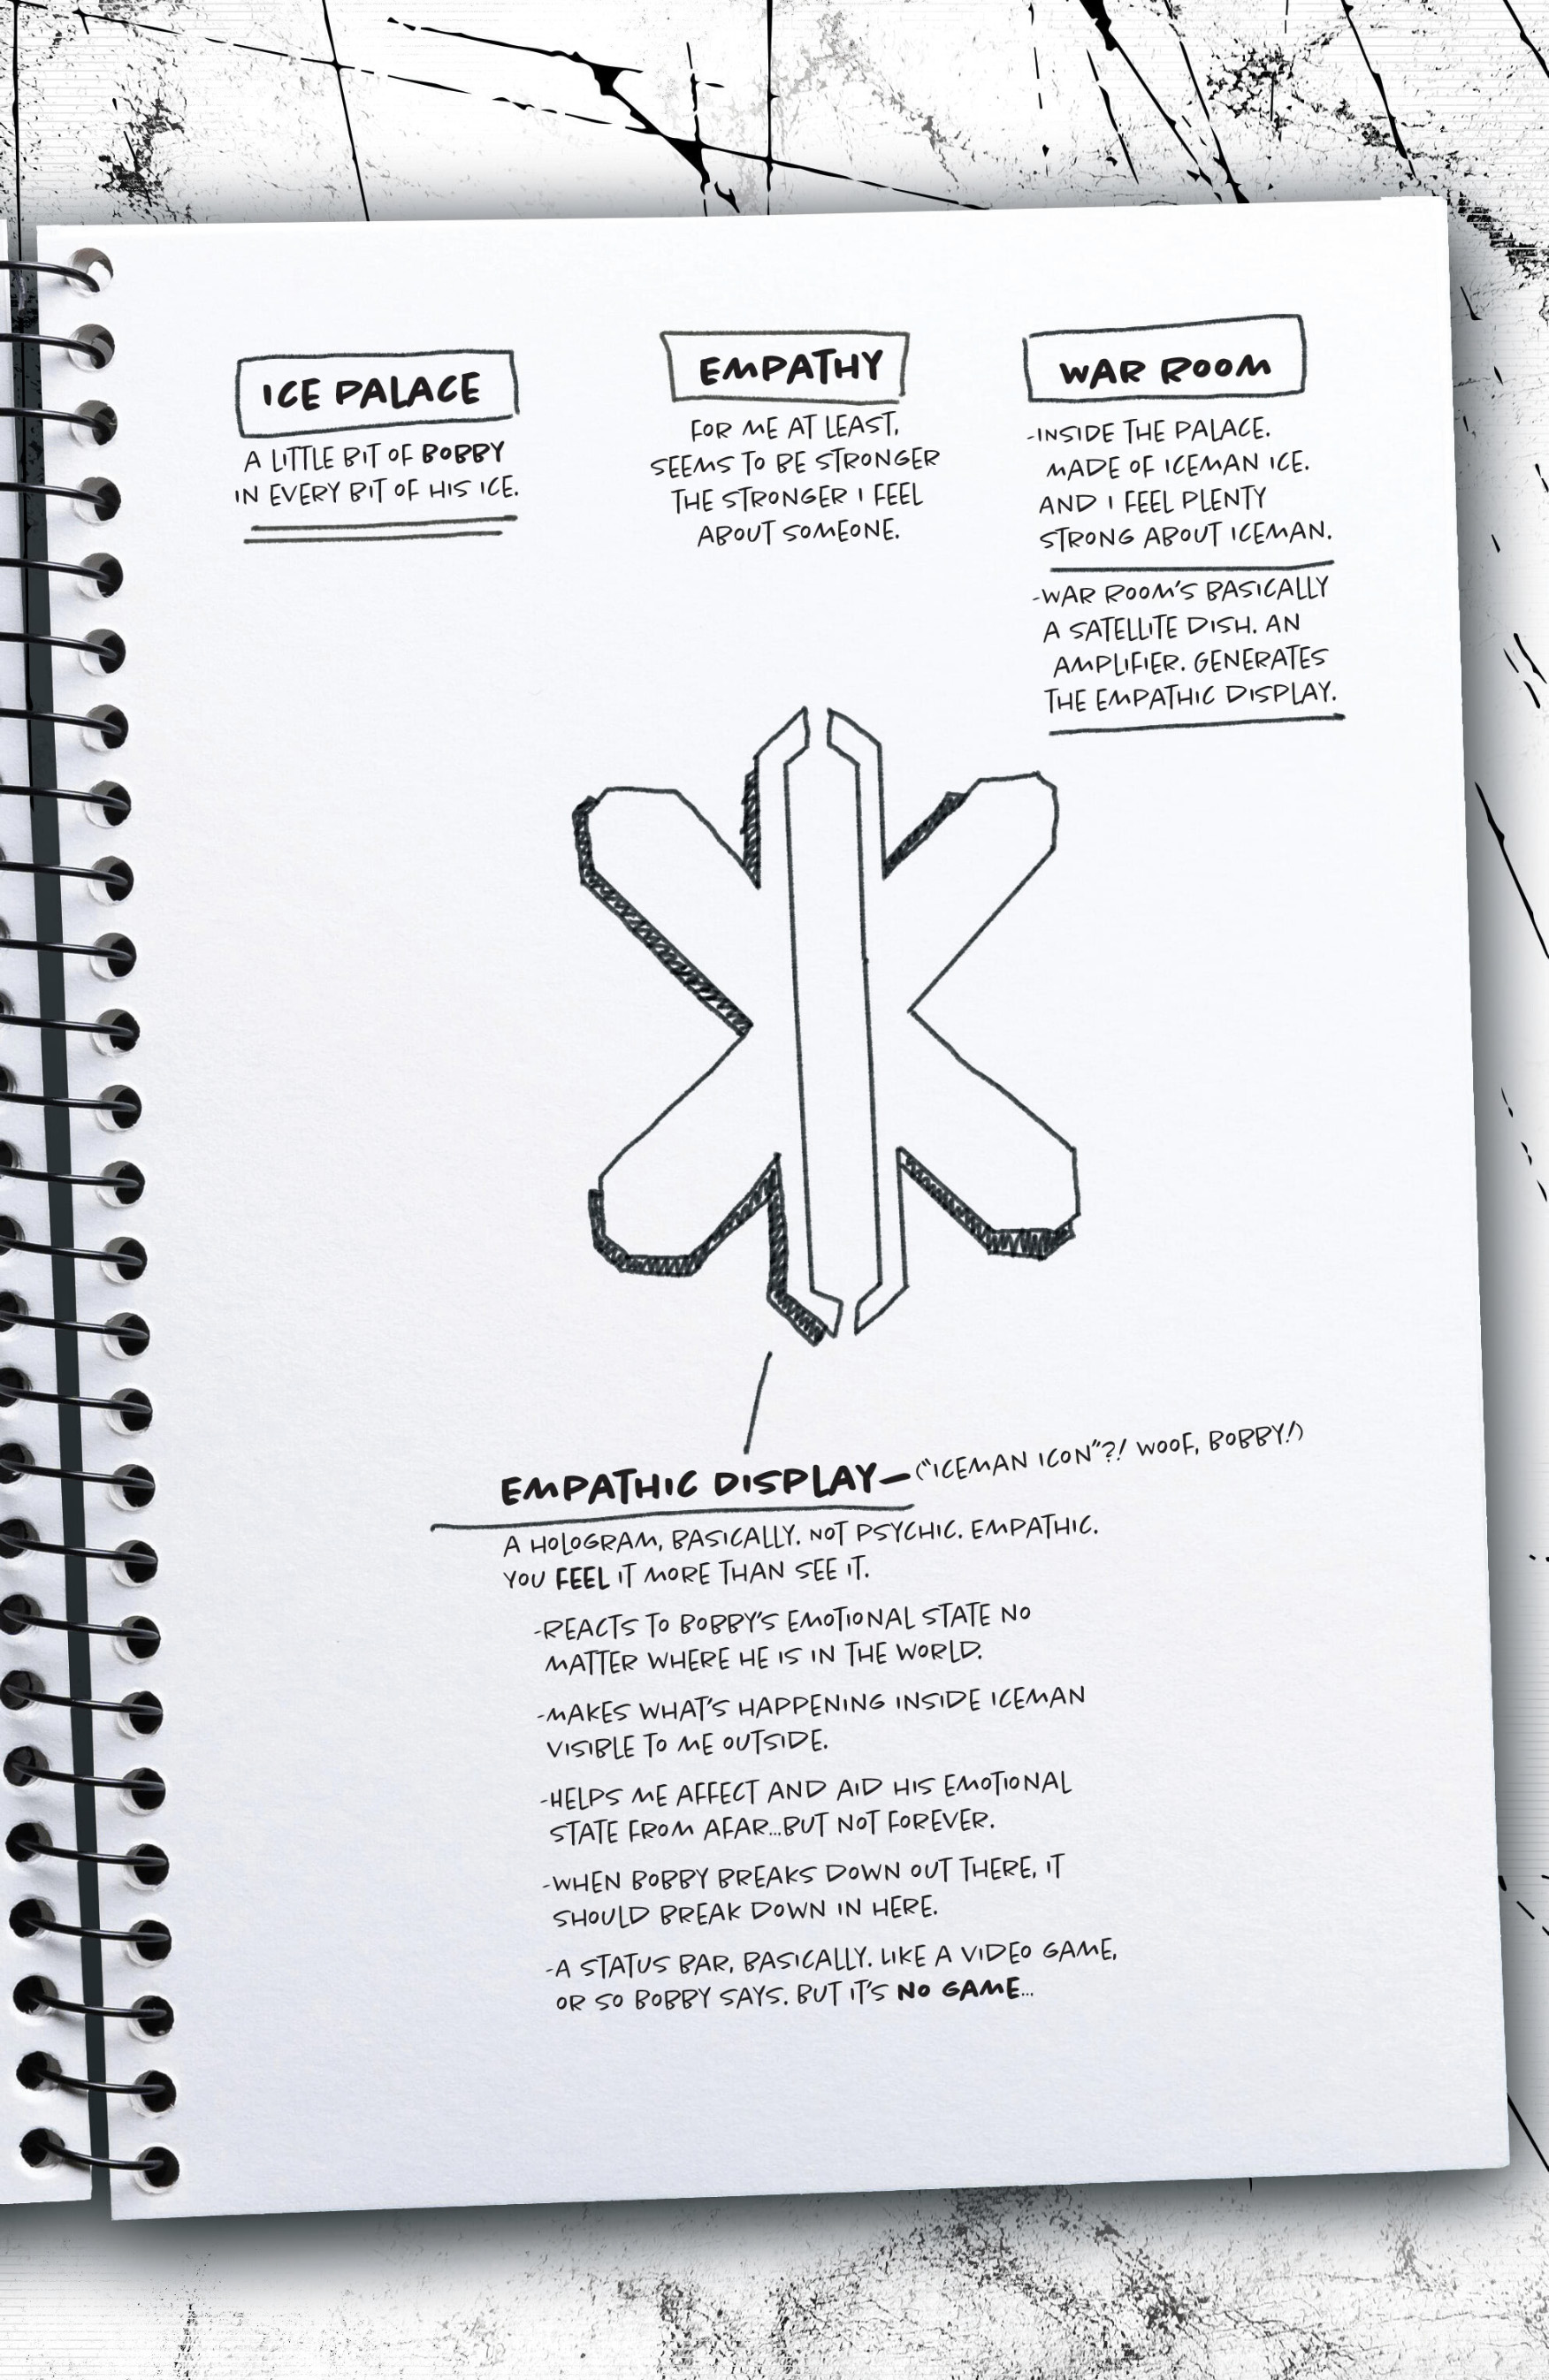 ICE PALACE
A LITTLE BIT OF BOBBY
IN EVERY BIT OF HIS ICE.
EMPATHY
FOR ME AT LEAST,
SEEMS TO BE STRONGER
THE STRONGER I FEEL
ABOUT SOMEONE.
WAR ROOM
-INSIDE THE PALACE.
MADE OF ICEMAN ICE.
AND I FEEL PLENTY
STRONG ABOUT ICEMAN.
-WAR ROOM'S BASICALLY
A SATELLITE DISH. AN
AMPLIFIER. GENERATES
THE EMPATHIC DISPLAY.
EMPATHIC DISPLAY—("ICEMAN ICON"?! WOOF, BOBBY!)
A HOLOGRAM, BASICALLY. NOT PSYCHIC. EMPATHIC.
YOU FEEL IT MORE THAN SEE IT.
-REACTS TO BOBBY'S EMOTIONAL STATE NO
MATTER WHERE HE IS IN THE WORLD.
-MAKES WHAT'S HAPPENING INSIDE ICEMAN
VISIBLE TO ME OUTSIDE.
-HELPS ME AFFECT AND AID HIS EMOTIONAL
STATE FROM AFAR...BUT NOT FOREVER.
-WHEN BOBBY BREAKS DOWN OUT THERE, IT
SHOULD BREAK DOWN IN HERE.
-A STATUS BAR, BASICALLY. LIKE A VIDEO GAME,
OR SO BOBBY SAYS. BUT IT'S NO GAME...